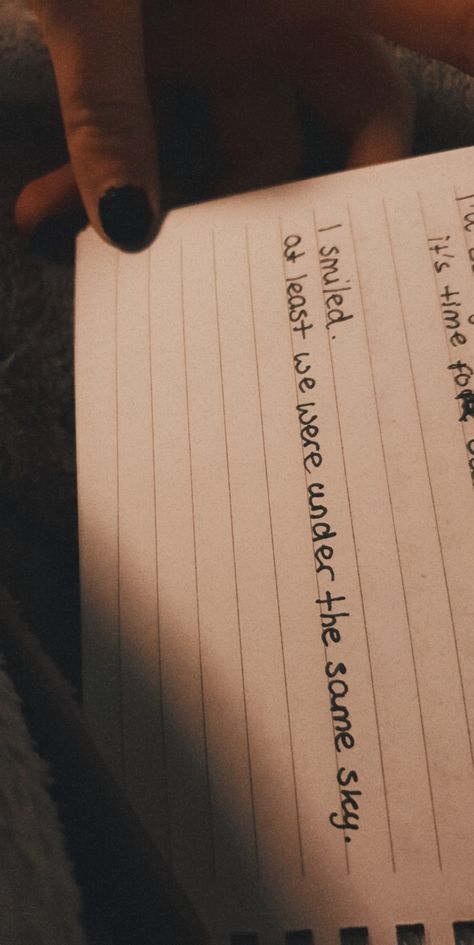 it's time for
I smiled.
at least we were under the same sky.